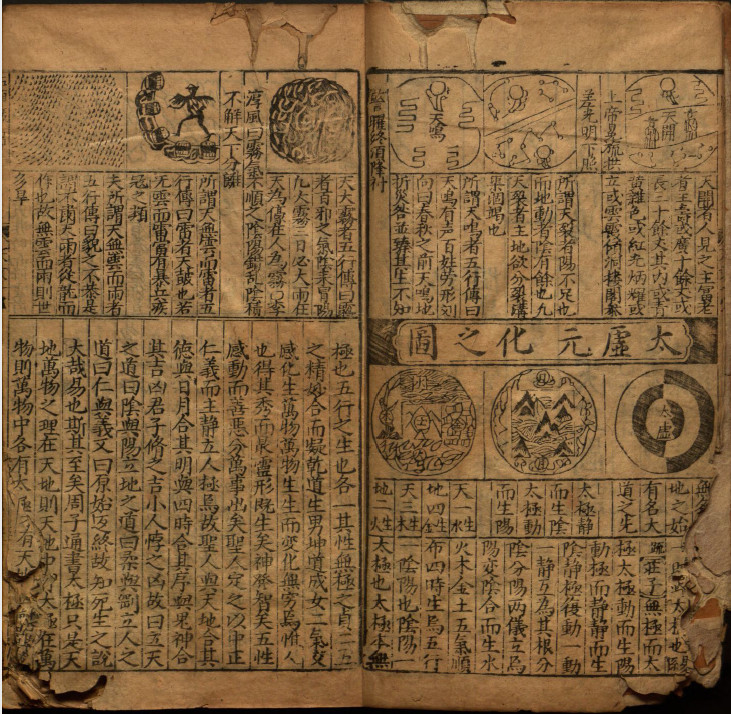 天開
天鳴
上帝冕旒拱
差光明下照
天開者人見之主富老
者主壽或廣十餘丈或
長三十餘丈其內或青
黃雜色或紅光炳耀或
所謂天裂者陽不足也
而地動者陰有餘也九
天裂者主地欲分裂
所謂天鳴者五行傳曰
天鳴有聲百姓勞形刘
向曰春秋之前天鳴地
折災咎並臻其主不知
太虛元化之圖
太虛
無名
地之始
有名大
道之先
太極靜
而生陰
太極動
而生陽
天一生水
地四生金
天三生木
地二生火
太極也
莊子無極而太
極太極動而生陽
動極而靜靜而生
陰靜極復動一動
一靜互為其根分
陰分陽兩儀立焉
陽变陰合而生水
火木金土五氣順
布四時生焉五行
一陰陽也陰陽一
太極也太極本無
淳風曰霧塞不順之陰陽錯亂陰積
不解天下分離
天大霧者五行傳曰霧
者百邪之氣陰來冒陽
九大霧三日必大雨在
天為濛在人為霧
所謂天無雲而雷者五
行傳曰雷者天皷也若
无雲而雷當有暴兵
冦之類
夫所謂天無雲而雨者
五行傳曰貌之不恭是
謂不肅天雨者從乾而
作也故無雲而雨則世
多旱
極也五行之生也各一其性無極之真二五
之精妙合而凝乾道生男坤道成女二氣交
感化生萬物萬物生生而變化無窮焉惟人
也得其秀而最灵形既生矣神發智矣五性
感動而善悪分萬事出矣聖人定之以中正
仁義而主静立人極焉故聖人與天地合其
德與日月合其明與四時合其序與鬼神合
其吉凶君子脩之吉小人悖之凶故曰立天
之道曰陰與陽立地之道曰柔與剛立人之
道曰仁與義又曰原始反終故知死生之說
大哉易也斯其至矣周子通書太極只是天
地萬物之理在天地則天地中有太極在萬
物則萬物中各有太極未有天地